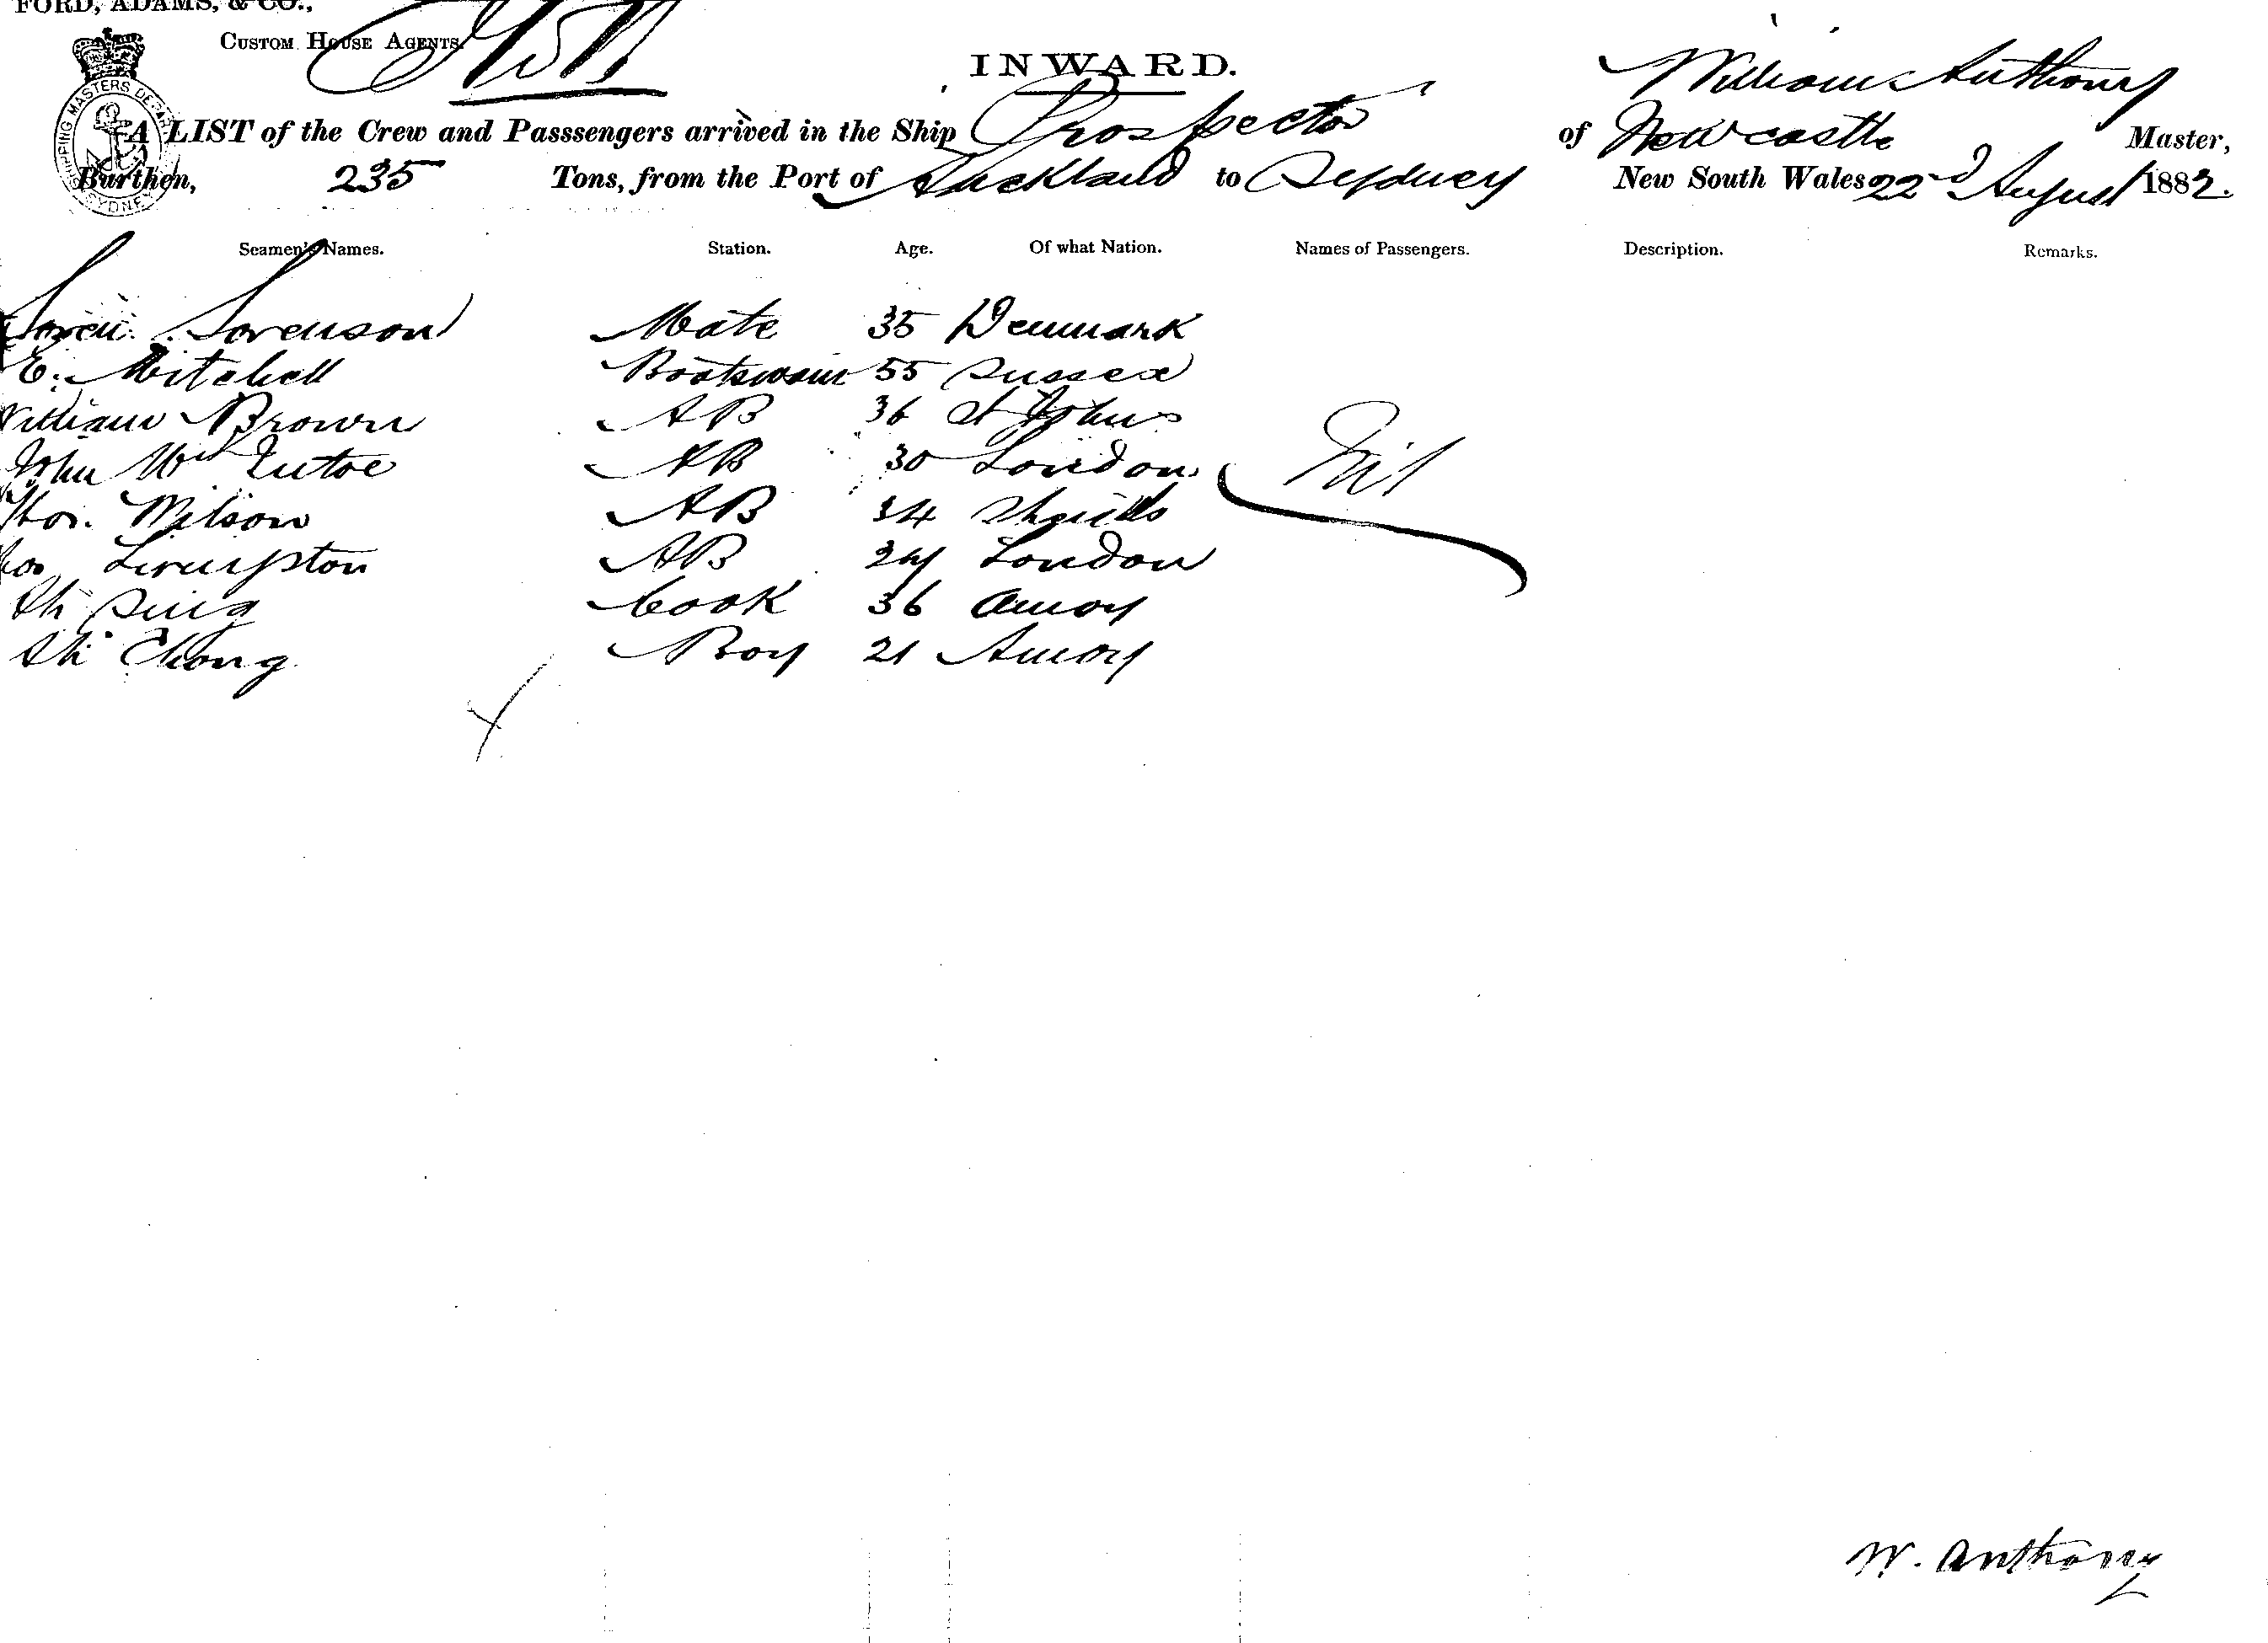 FORD, ADAMS, & CO.,
CUSTOM HOUSE AGENTS.
INWARD.
SHIPPING MASTERS DEPART
SYDNEY
William Anthony
A LIST of the Crew and Passsengers arrived in the Ship Prospector of Newcastle Master,
Burthen, 235 Tons, from the Port of Auckland to Sydney New South Wales 22nd August 1882.
Seamen's Names. Station. Age. Of what Nation. Names of Passengers. Description. Remarks.
Soren Sorenson Mate 35 Denmark
E. Mitchell Boatswain 55 Sussex
William Brown AB 36 St Johns
John AB 30 London Nil
Thos. Wilson AB 34 Shields
AB London
Ah Sing Cook 36 Amoy
Ah Chong Boy 21 Amoy
W. Anthony